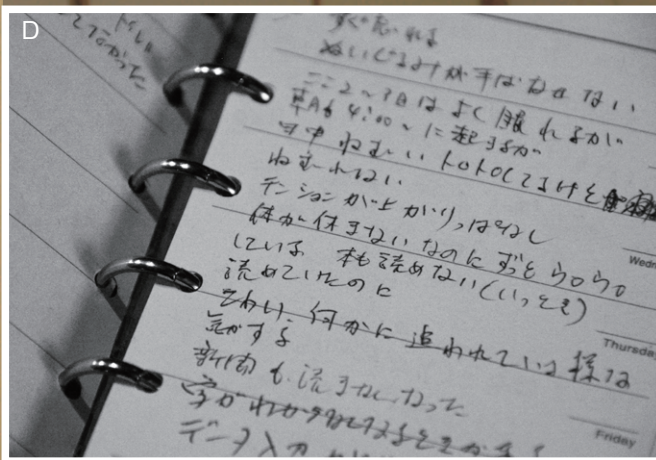 D
すぐ忘れる
ぬいぐるみが手ばなせない
ここ2〜3日はよく眠れるが
朝AM 4:00〜に起きるが
日中ねむい トロトロしてるけど
ねむれない
テンションが上がりっぱなし
体が休まないなのにずっとうろうろ
している 本も読めない(いっとき)
読めていたのに
こわい、何かに追われている様な
気がする
新聞も読まなくなった
字が
データ入力
Wedn
Thursday
Friday